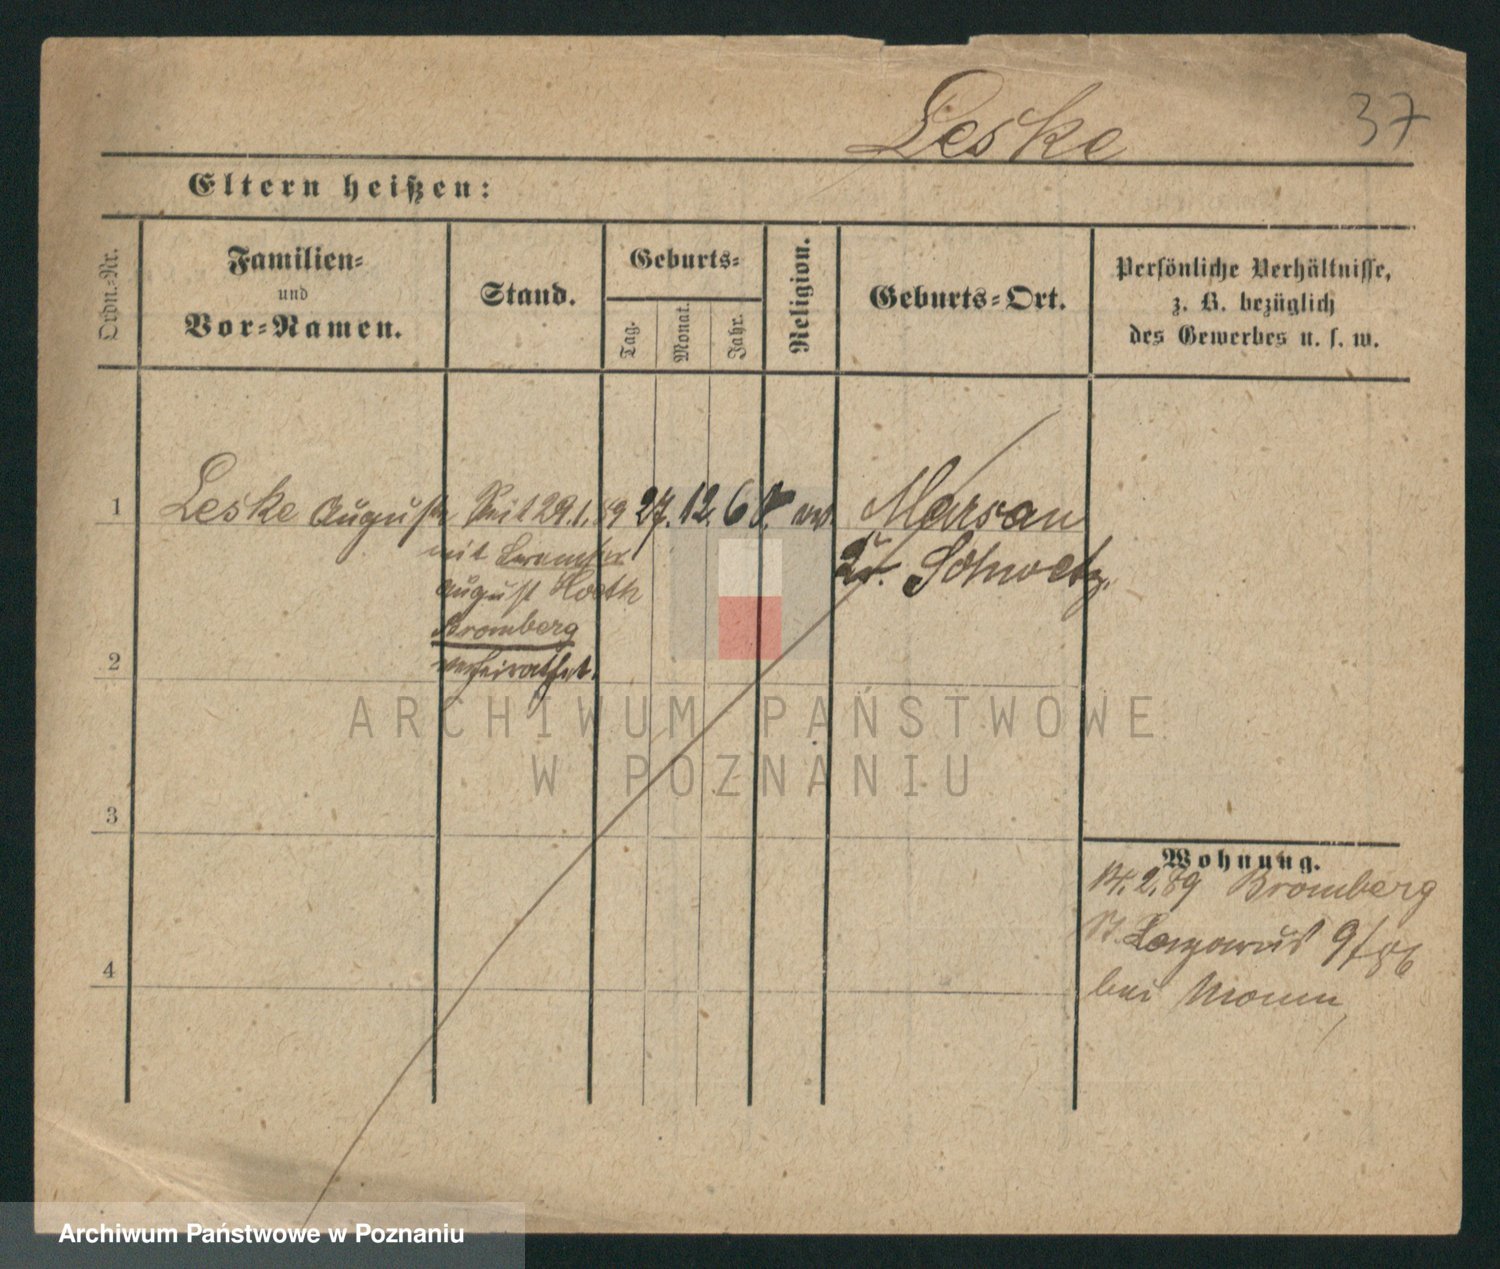 Leske
37
Eltern heißen:
Ordn.-Nr.
Familien-
und
Vor-Namen.
Stand.
Geburts-
Tag.
Monat.
Jahr.
Religion.
Geburts-Ort.
Persönliche Verhältnisse,
z. B. bezüglich
des Gewerbes u. s. w.
1
Leske Auguste
Seit 29.1.89
mit
August
Bromberg
verheirathet.
27. 12. 68. ev.
Marsau
Kr. Schwetz.
2
3
4
Wohnung.
2.89 Bromberg
St. Lazarus 9/86
bei
ARCHIWUM PAŃSTWOWE
W POZNANIU
Archiwum Państwowe w Poznaniu